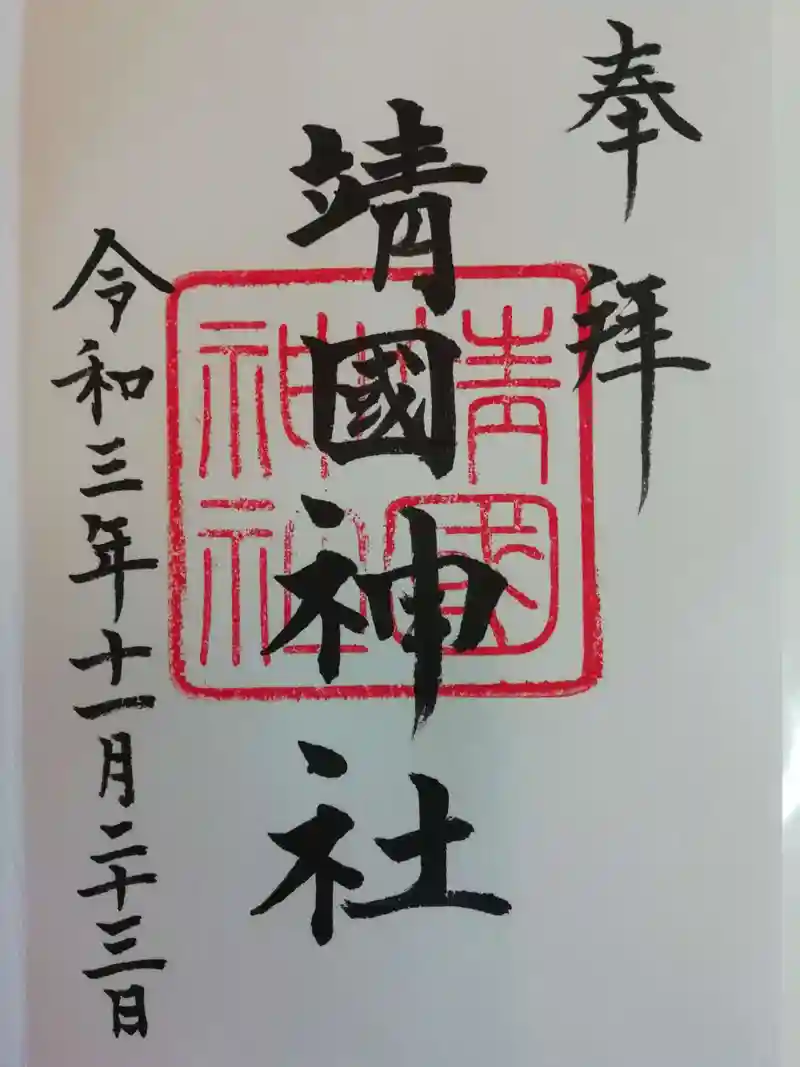 奉拜
靖國神社
靖國神社
令和三年十一月二十三日